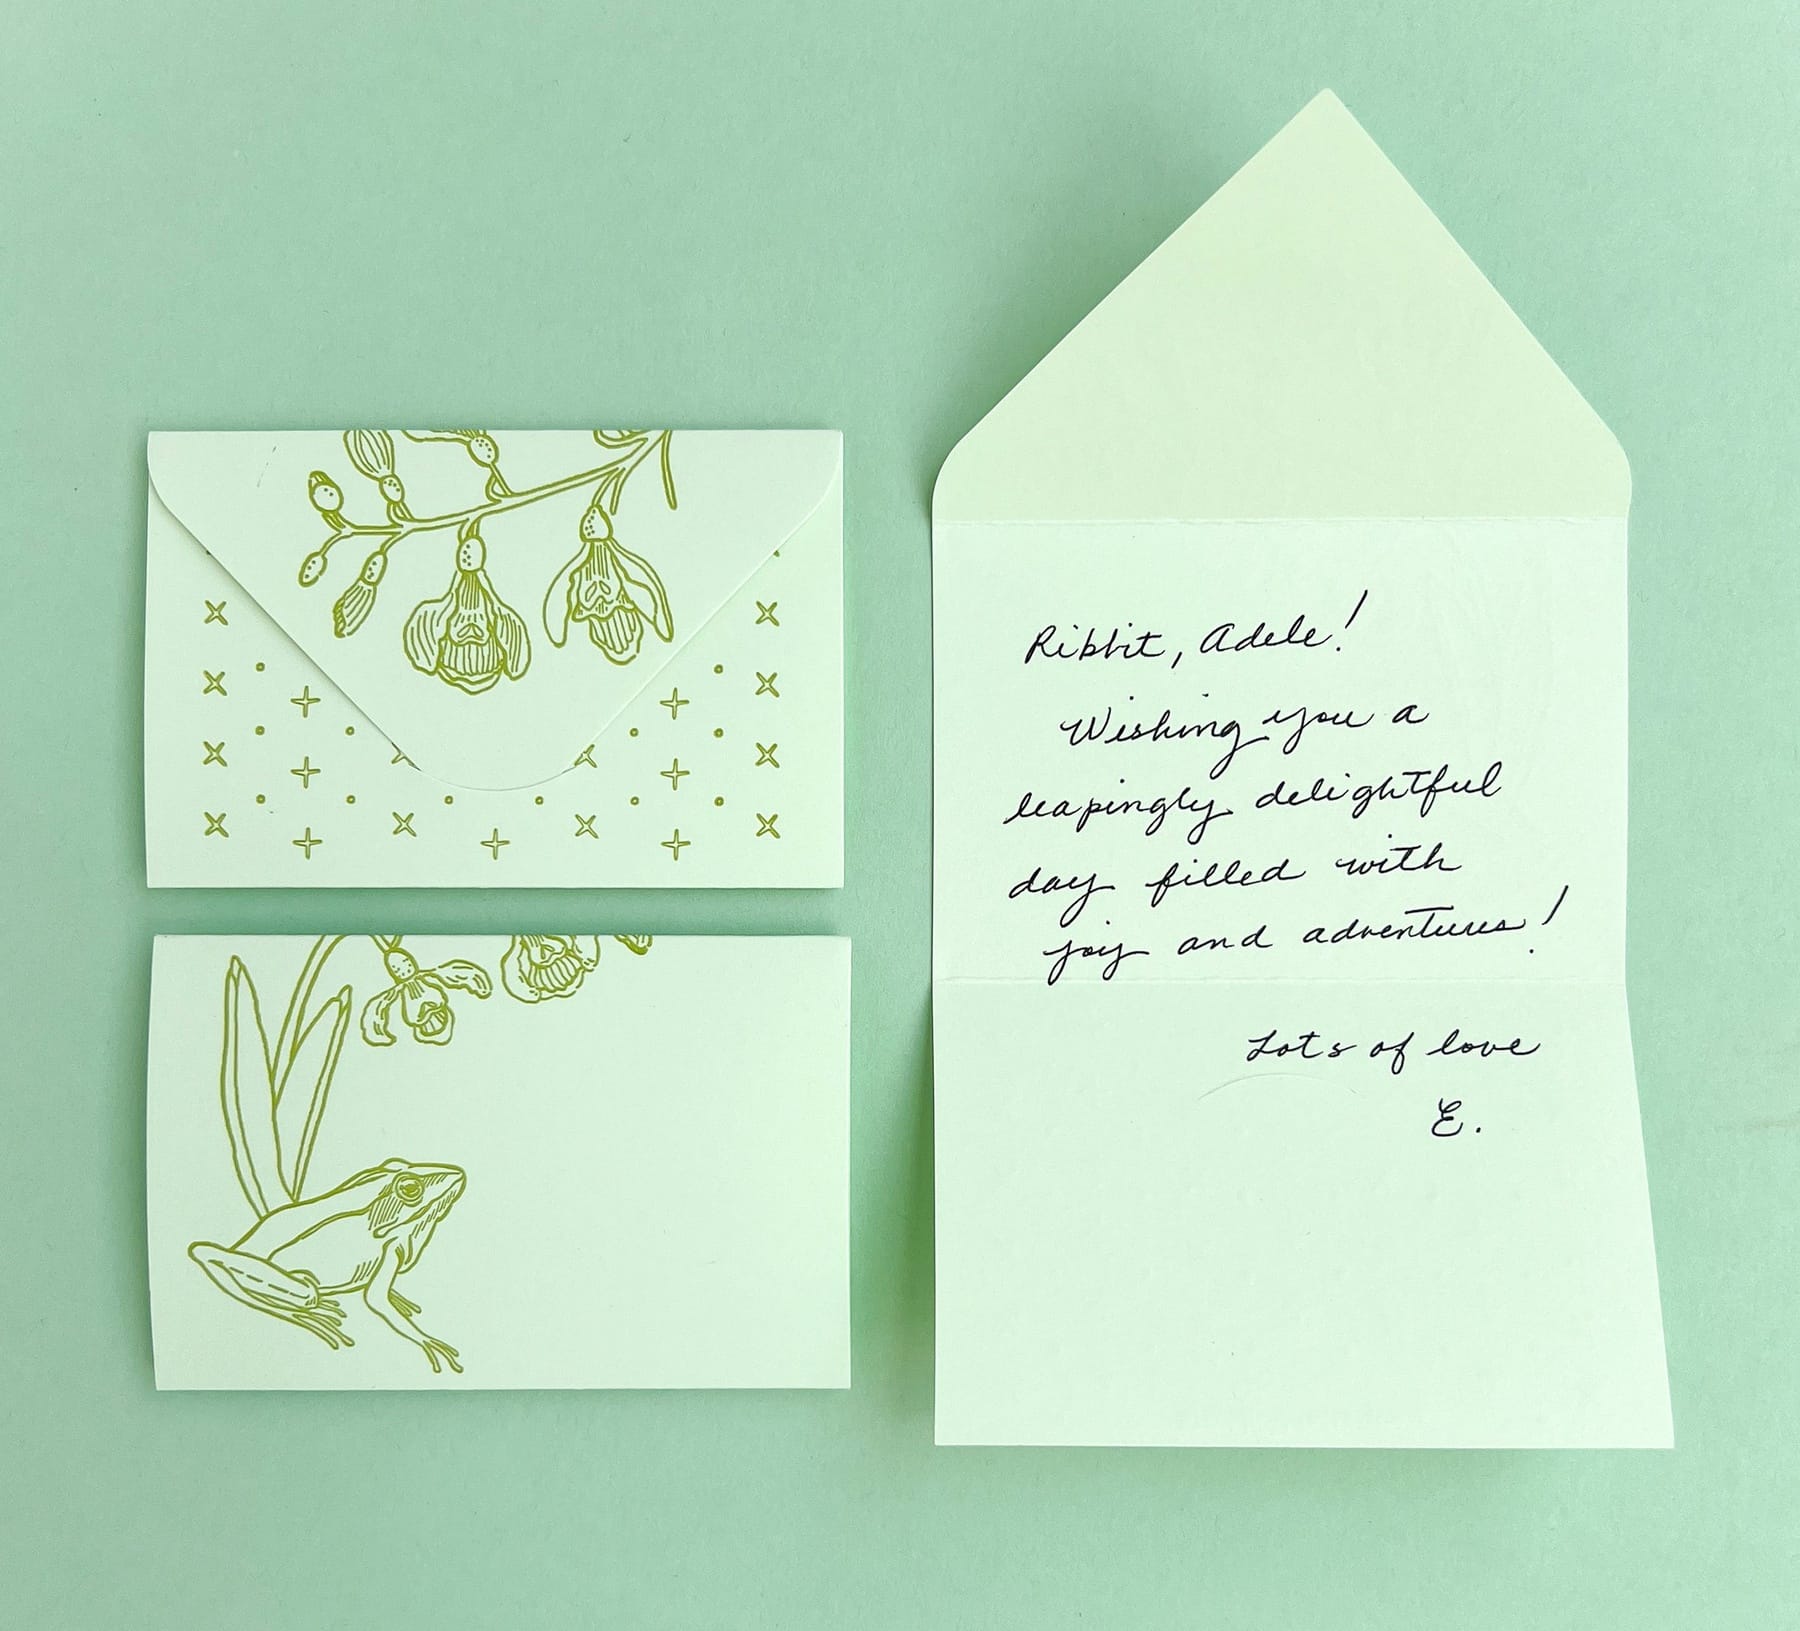 Ribbit, Adele!
Wishing you a
leapingly delightful
day filled with
joy and adventures!
Lots of love
E.